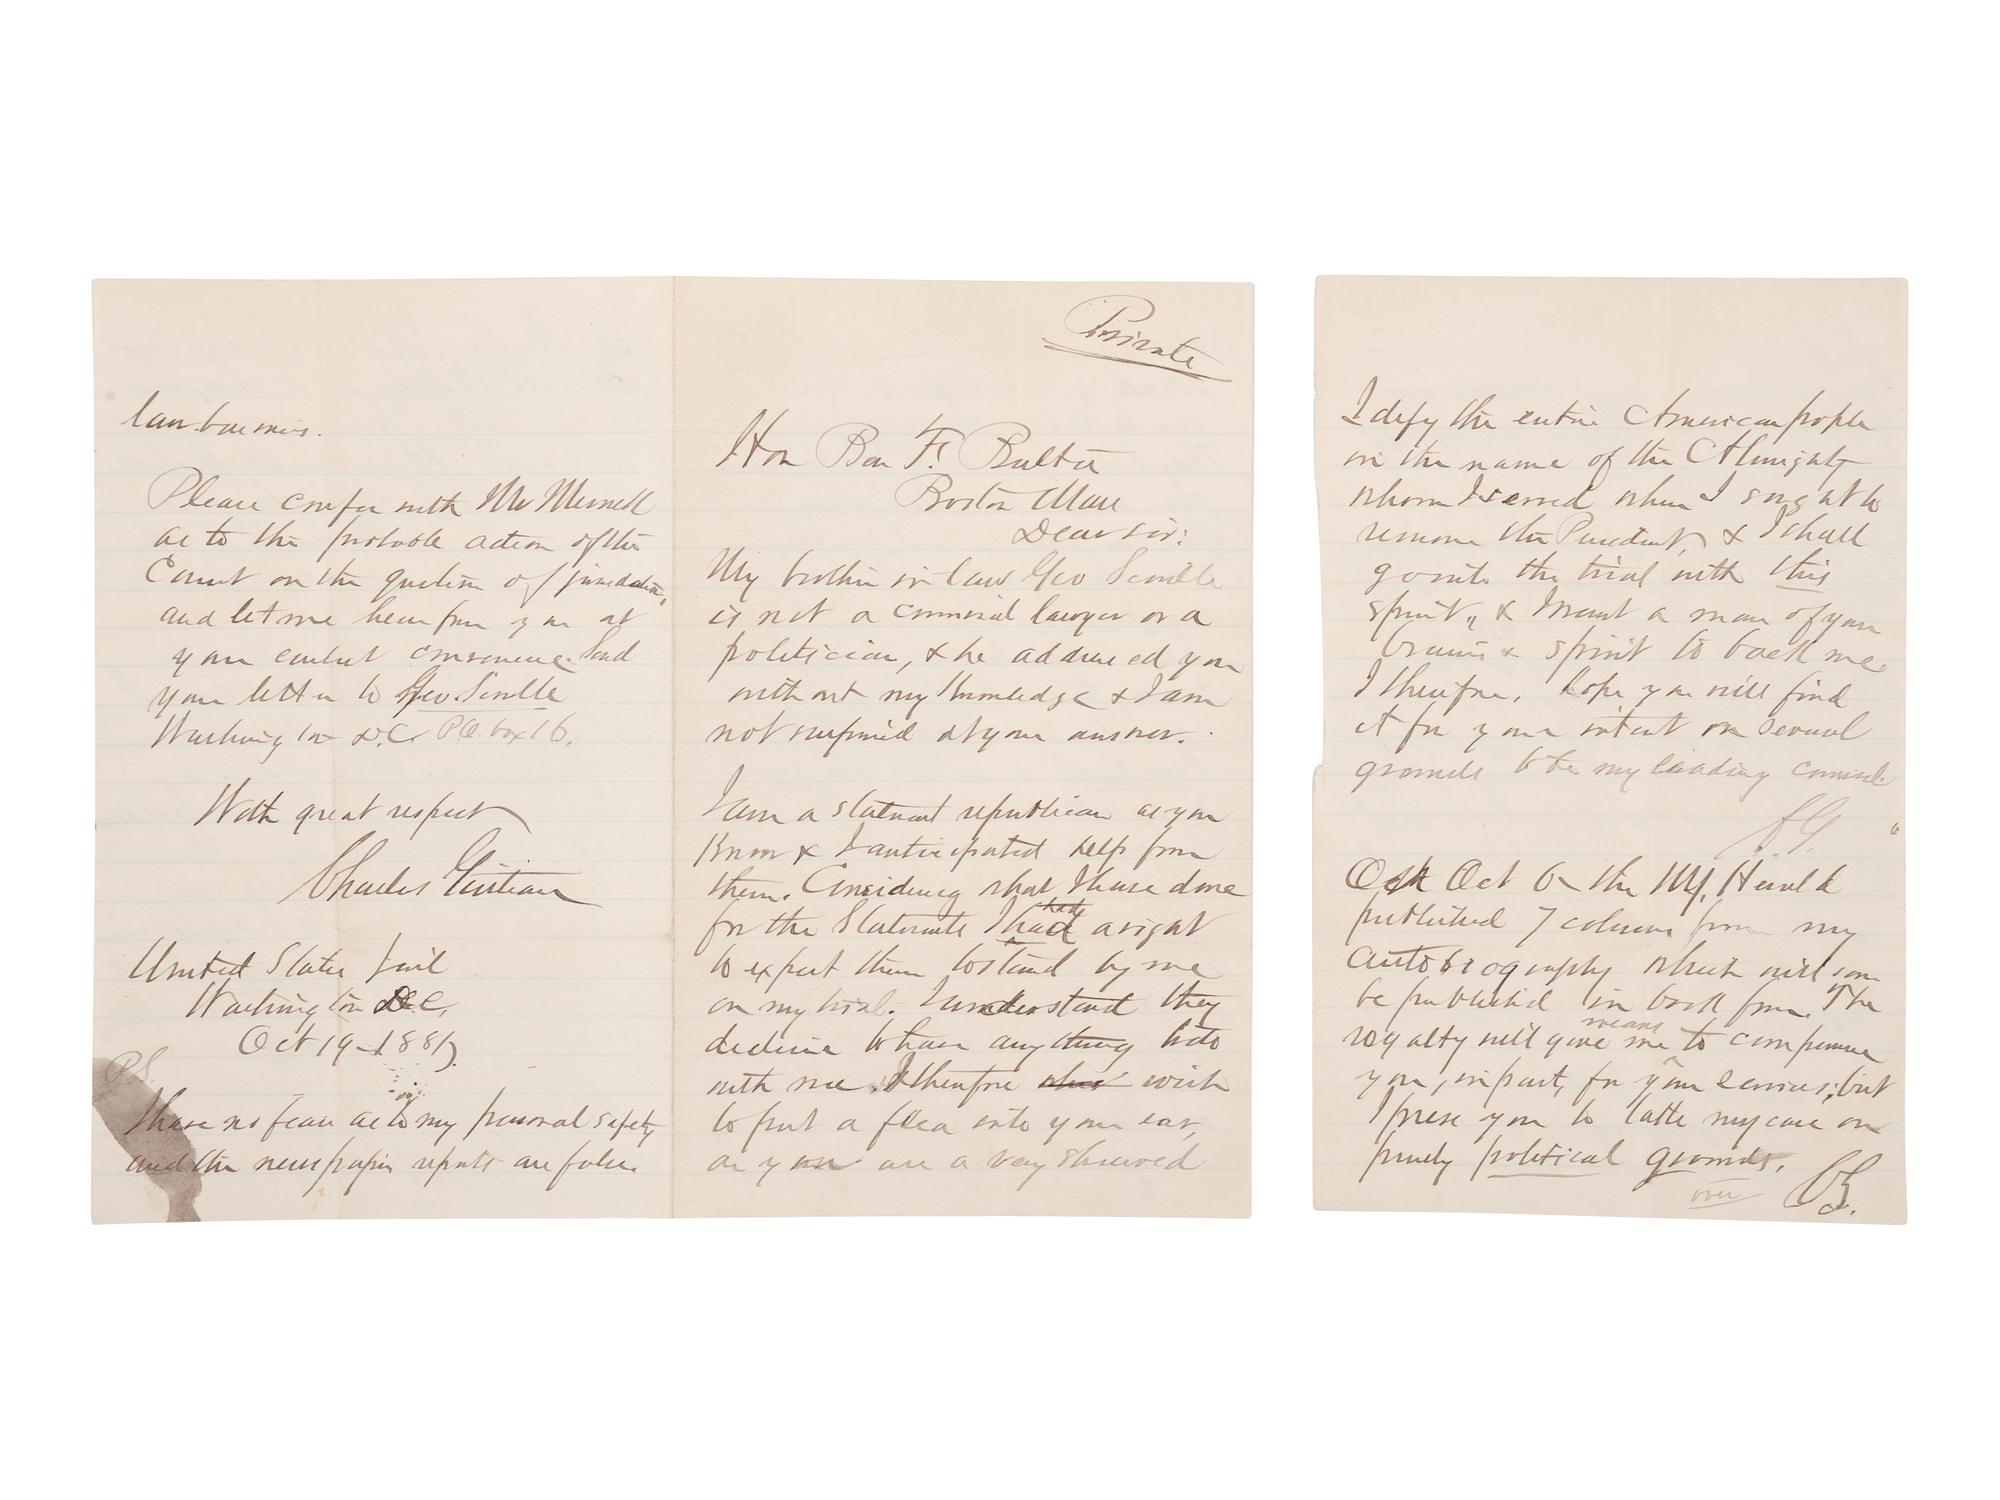 law business.
Please confer with Mr Merrick
as to the probable action of the
Court on the question of jurisdiction,
and let me hear from you at
your earliest convenience. Send
your letter to Geo. Scoville
Washington D.C. P.O. box 16.
With great respect
Charles Guiteau
United States Jail
Washington D.C.
Oct 19-1881
P.S.
I have no fear as to my personal safety
and the newspaper reports are false.
Private
Hon Ben F. Butler
Boston Mass
Dear sir:
My brother in law Geo Scoville
is not a criminal lawyer or a
politician, & he addressed you
without my knowledge & I am
not surprised at your answer.
I am a stalwart republican as you
know & I anticipated help from
them. Considering what I have done
for the Stalwarts I had a right
to expect them to stand by me
on my trial. I understand they
decline to have anything to do
with me. I therefore wish
to put a flea into your ear,
as you are a very shrewd
I defy the entire American people
in the name of the Almighty
whom I served when I sought to
remove the President, & I shall
go into the trial with this
spirit, & I want a man of your
brains & spirit to back me
I therefore, hope you will find
it for your interest on several
grounds to be my leading counsel
CG.
Oct 6 the NY. Herald
published 7 columns from my
autobiography which will soon
be published in book form. The
royalty will give me means to compensate
you, in part, for your services, but
I prese you to take my case on
purely political grounds.
over CG.